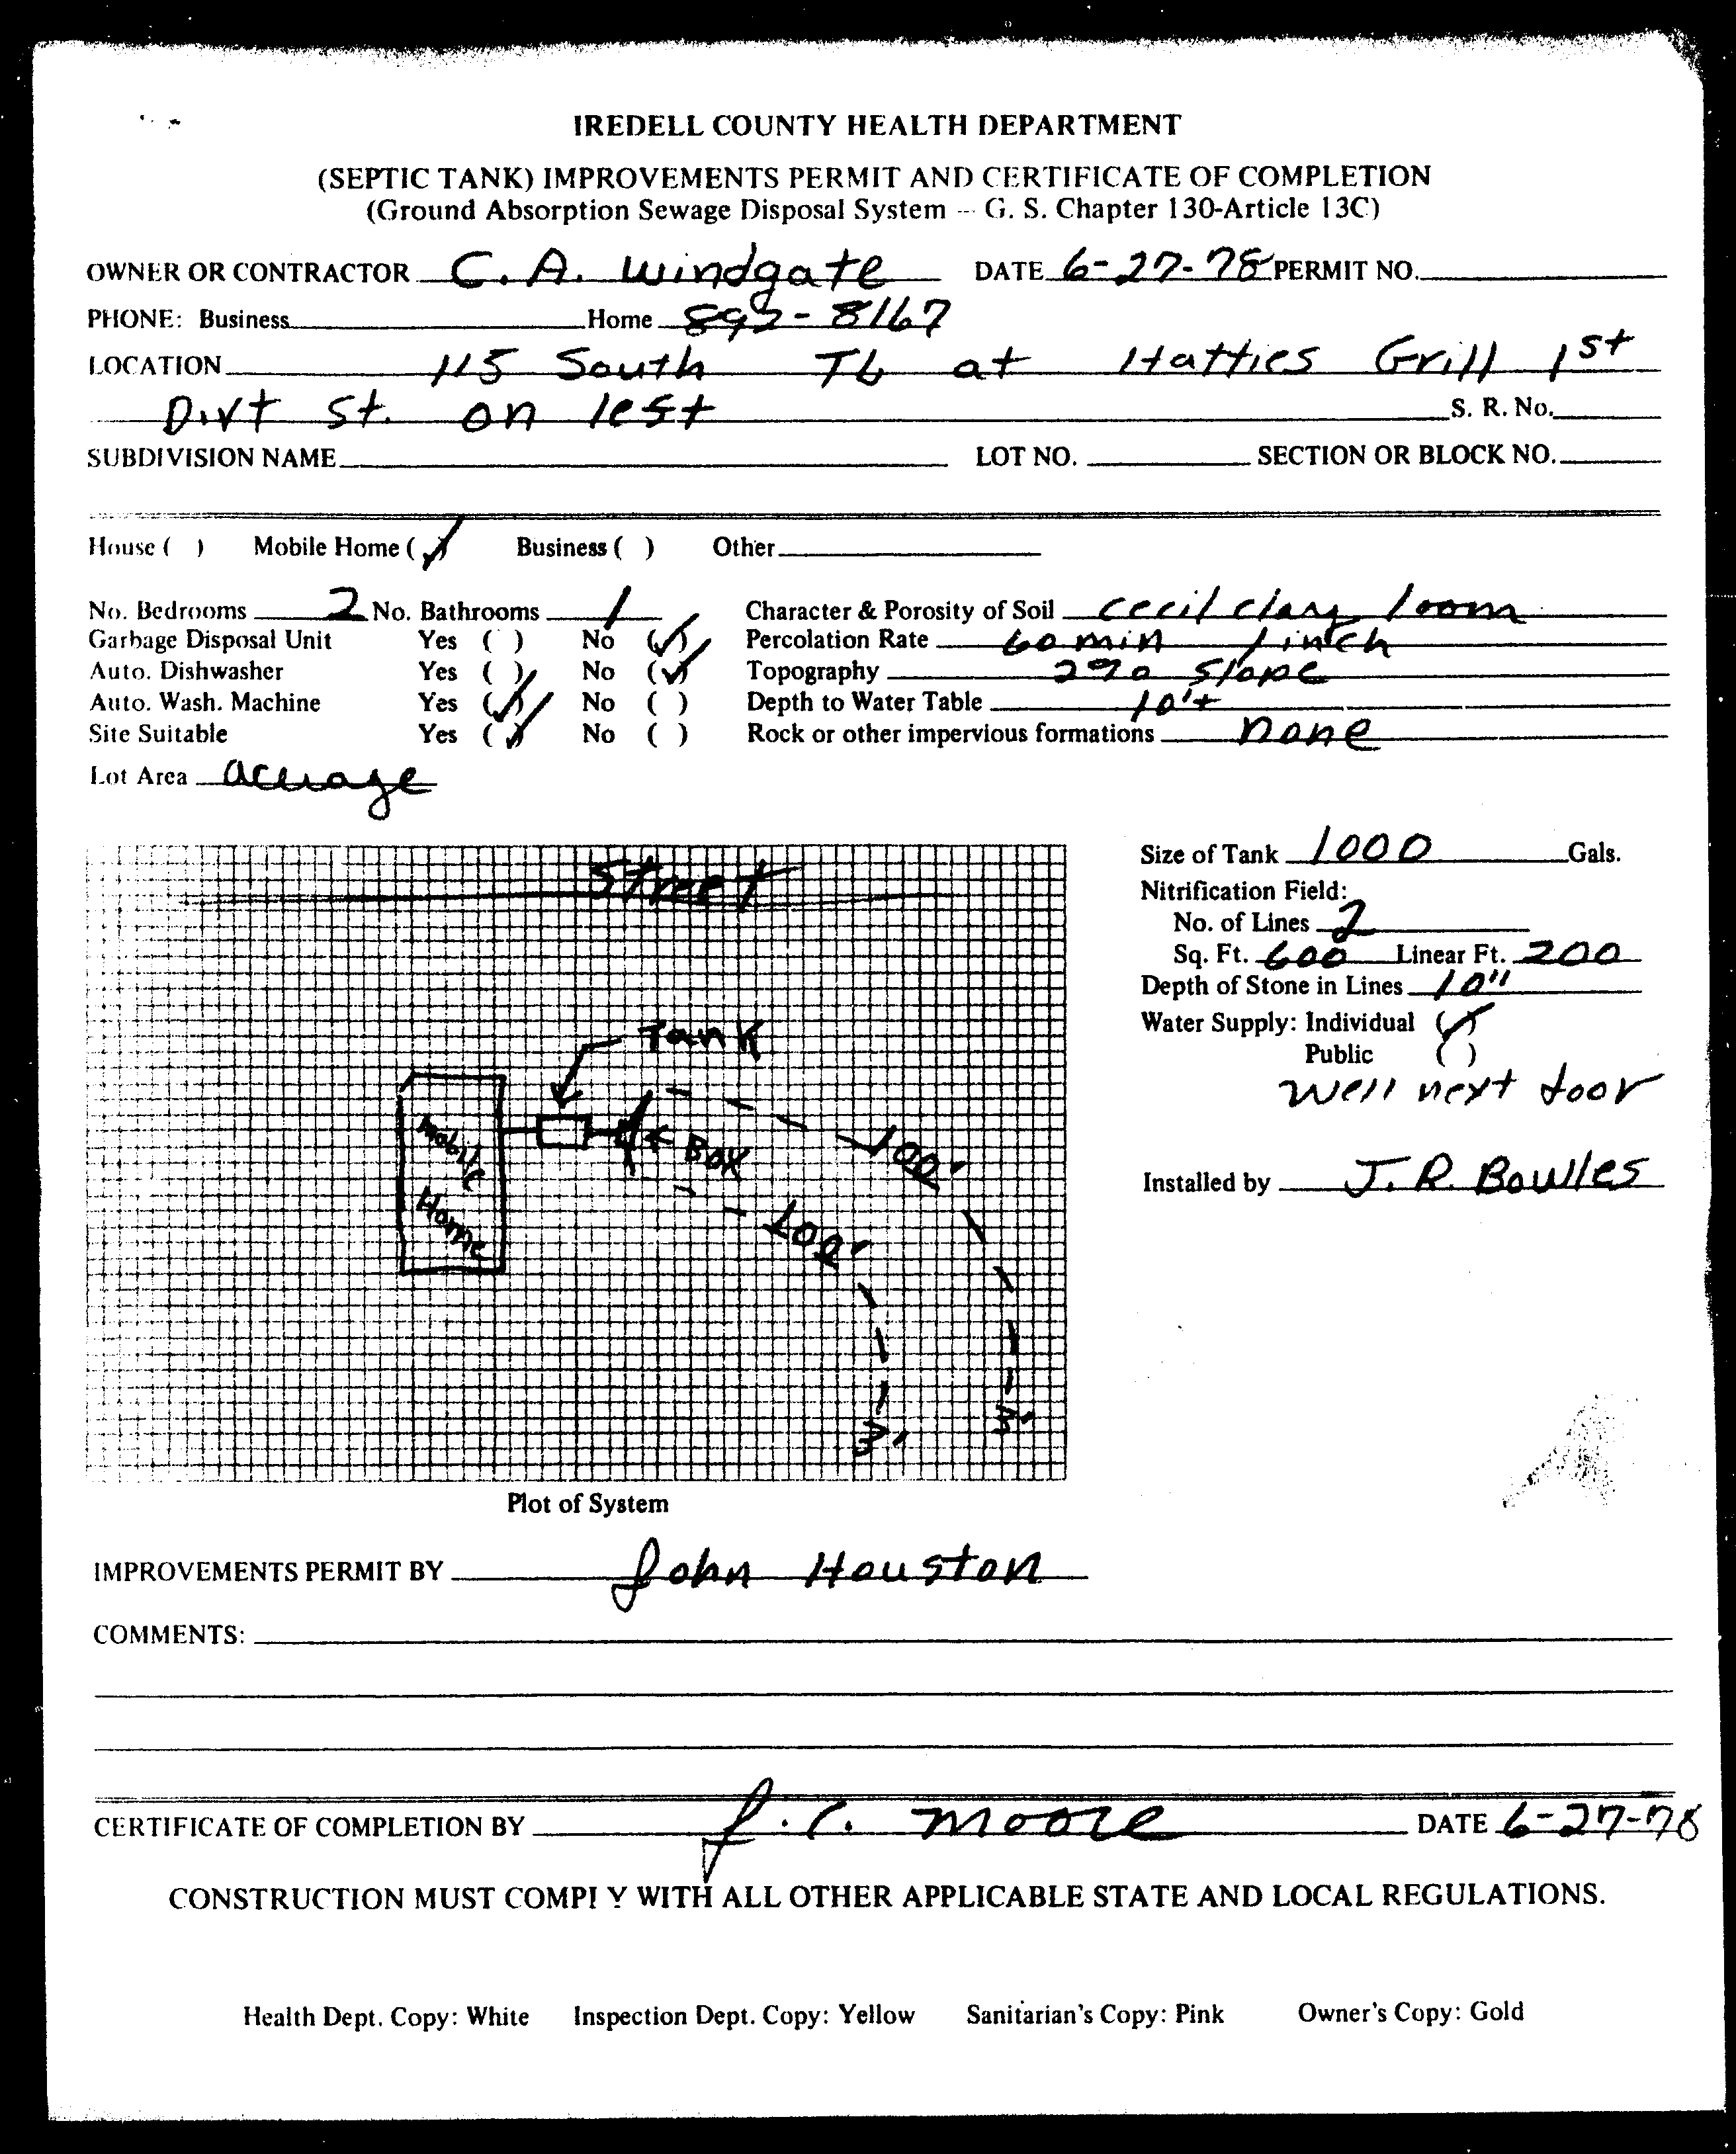 IREDELL COUNTY HEALTH DEPARTMENT
(SEPTIC TANK) IMPROVEMENTS PERMIT AND CERTIFICATE OF COMPLETION
(Ground Absorption Sewage Disposal System -- G. S. Chapter 130-Article 13C)
OWNER OR CONTRACTOR C. A. Windgate DATE 6-27-78 PERMIT NO.
PHONE: Business Home 892-8167
LOCATION 115 South TL at Hatties Grill 1st
Dirt St. on left S. R. No.
SUBDIVISION NAME LOT NO. SECTION OR BLOCK NO.
House ( ) Mobile Home (✓) Business ( ) Other
No. Bedrooms 2 No. Bathrooms 1 Character & Porosity of Soil Cecil clay loom
Garbage Disposal Unit Yes ( ) No (✓) Percolation Rate 60 min 1 inch
Auto. Dishwasher Yes ( ) No (✓) Topography 2% Slope
Auto. Wash. Machine Yes (✓) No ( ) Depth to Water Table 10'+
Site Suitable Yes (✓) No ( ) Rock or other impervious formations none
Lot Area acreage
Size of Tank 1000 Gals.
Nitrification Field:
No. of Lines 2
Sq. Ft. 600 Linear Ft. 200
Depth of Stone in Lines 10"
Water Supply: Individual (✓)
Public ( )
Well next door
Installed by J. R. Bowles
Street
Tank
Box
Mobile
Home
100'
100'
3'
3'
Plot of System
IMPROVEMENTS PERMIT BY John Houston
COMMENTS:
CERTIFICATE OF COMPLETION BY J. C. Moore DATE 6-27-78
CONSTRUCTION MUST COMPLY WITH ALL OTHER APPLICABLE STATE AND LOCAL REGULATIONS.
Health Dept. Copy: White Inspection Dept. Copy: Yellow Sanitarian's Copy: Pink Owner's Copy: Gold